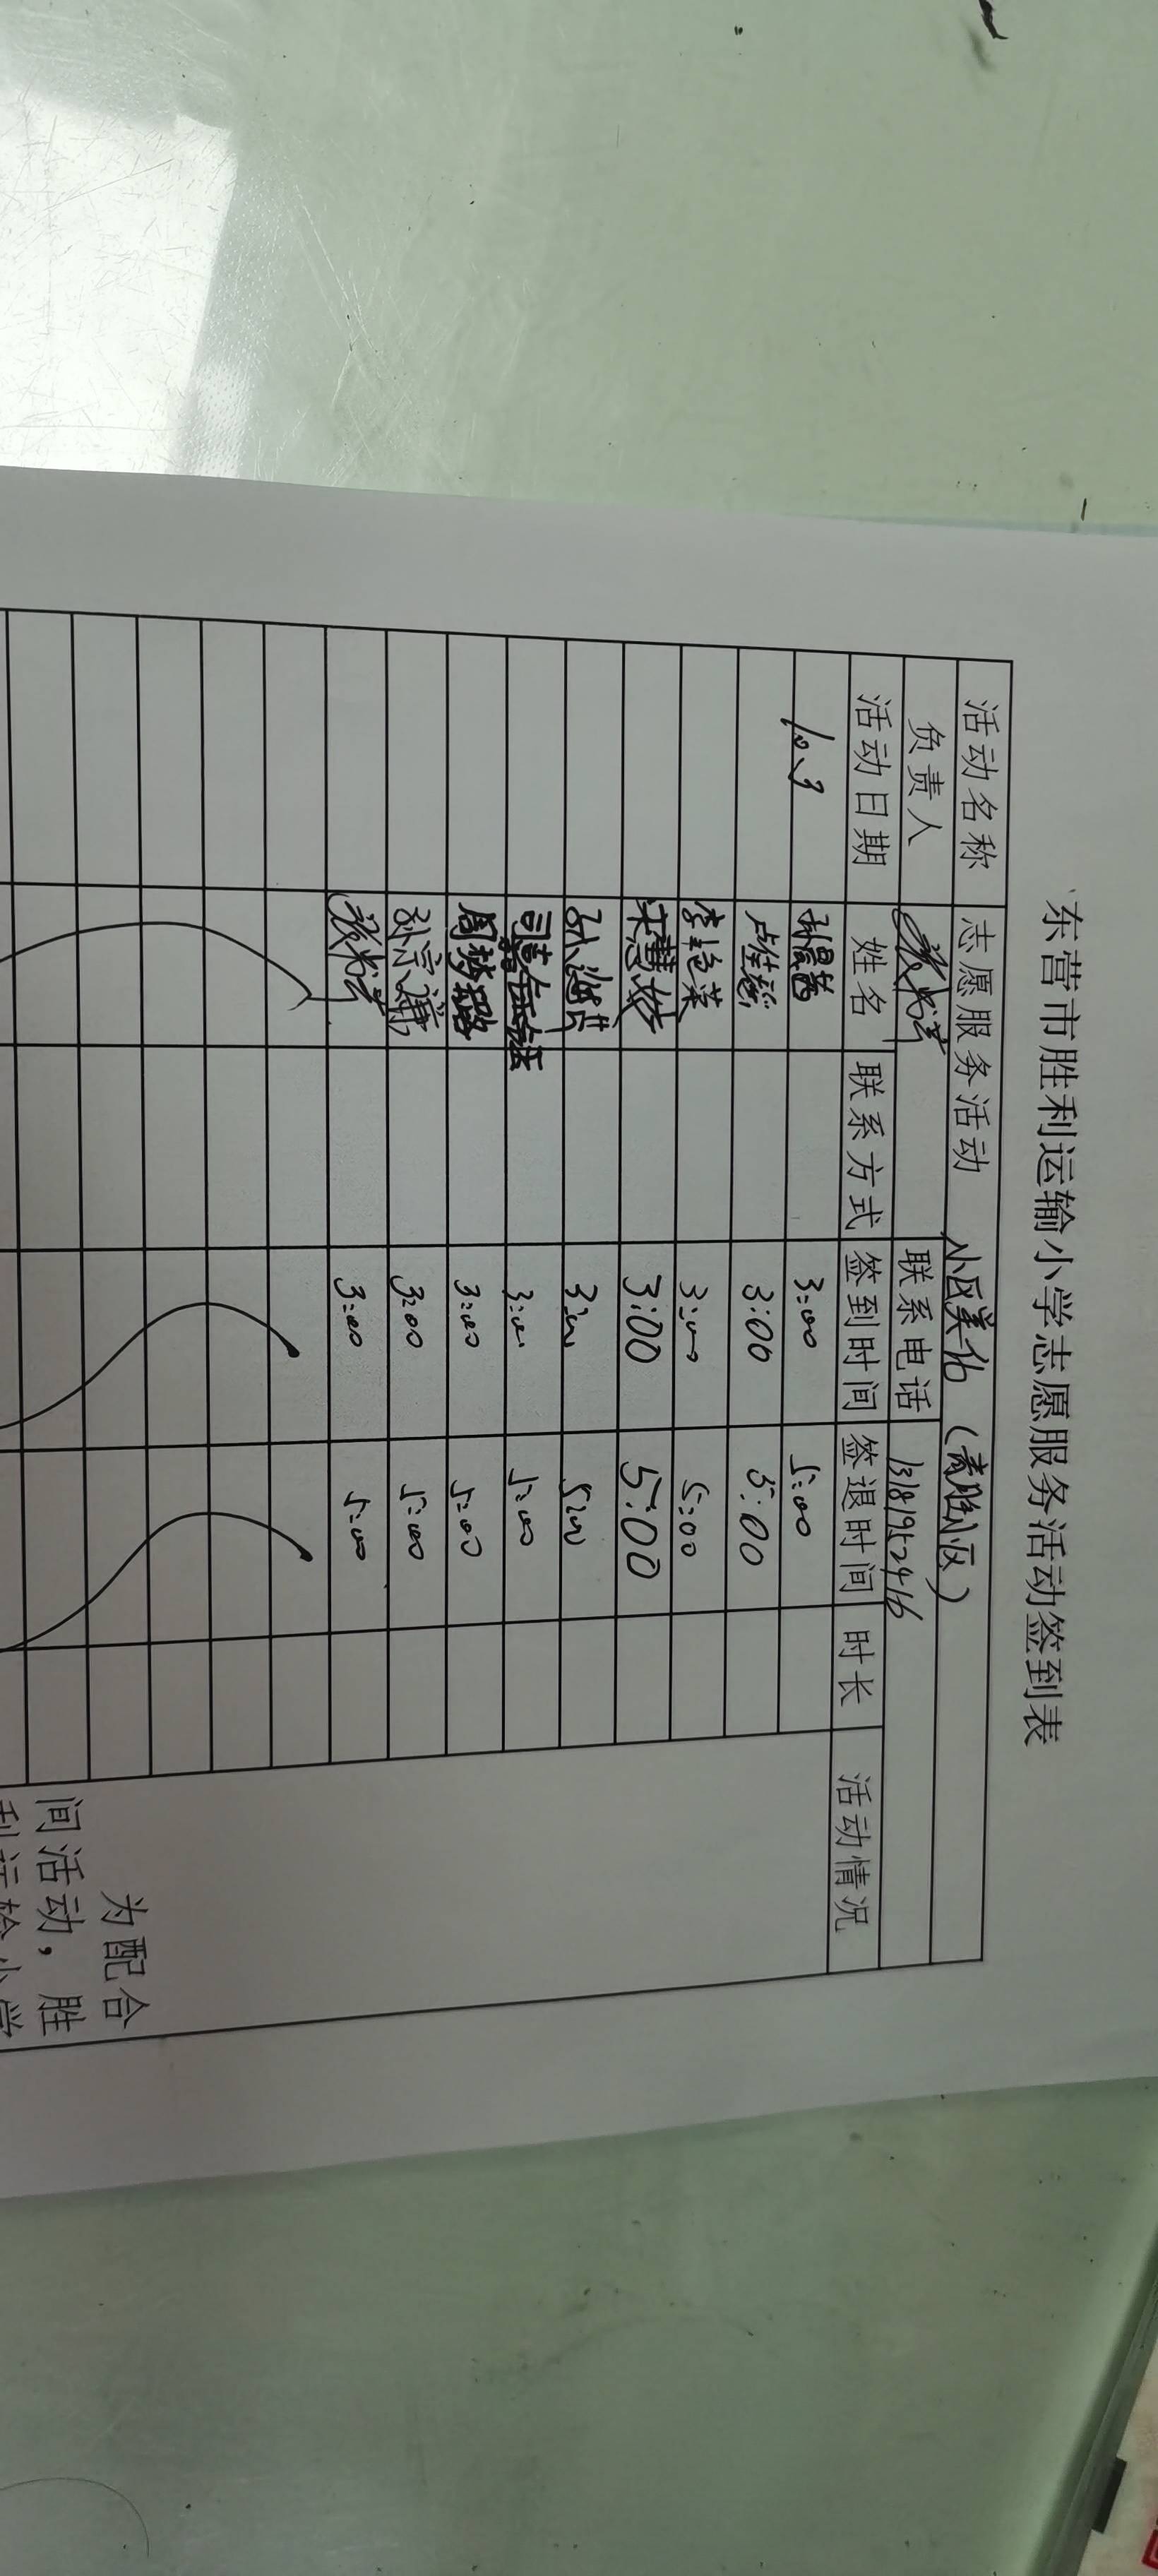 东营市胜利运输小学志愿服务活动签到表
活动名称 志愿服务活动 小区美化（青胜小区）
负责人 联系电话 13181952416
活动日期 姓名 联系方式 签到时间 签退时间 时长 活动情况
10.3 孙晨茜 3:00 5:00
3:00 5:00
李艳菜 3:00 5:00
宋慧妙 3:00 5:00
3:00 5:00
3:00 5:00
周梦璐 3:00 5:00
孙宗谦 3:00 5:00
3:00 5:00
为配合
间活动，胜
利运输小学